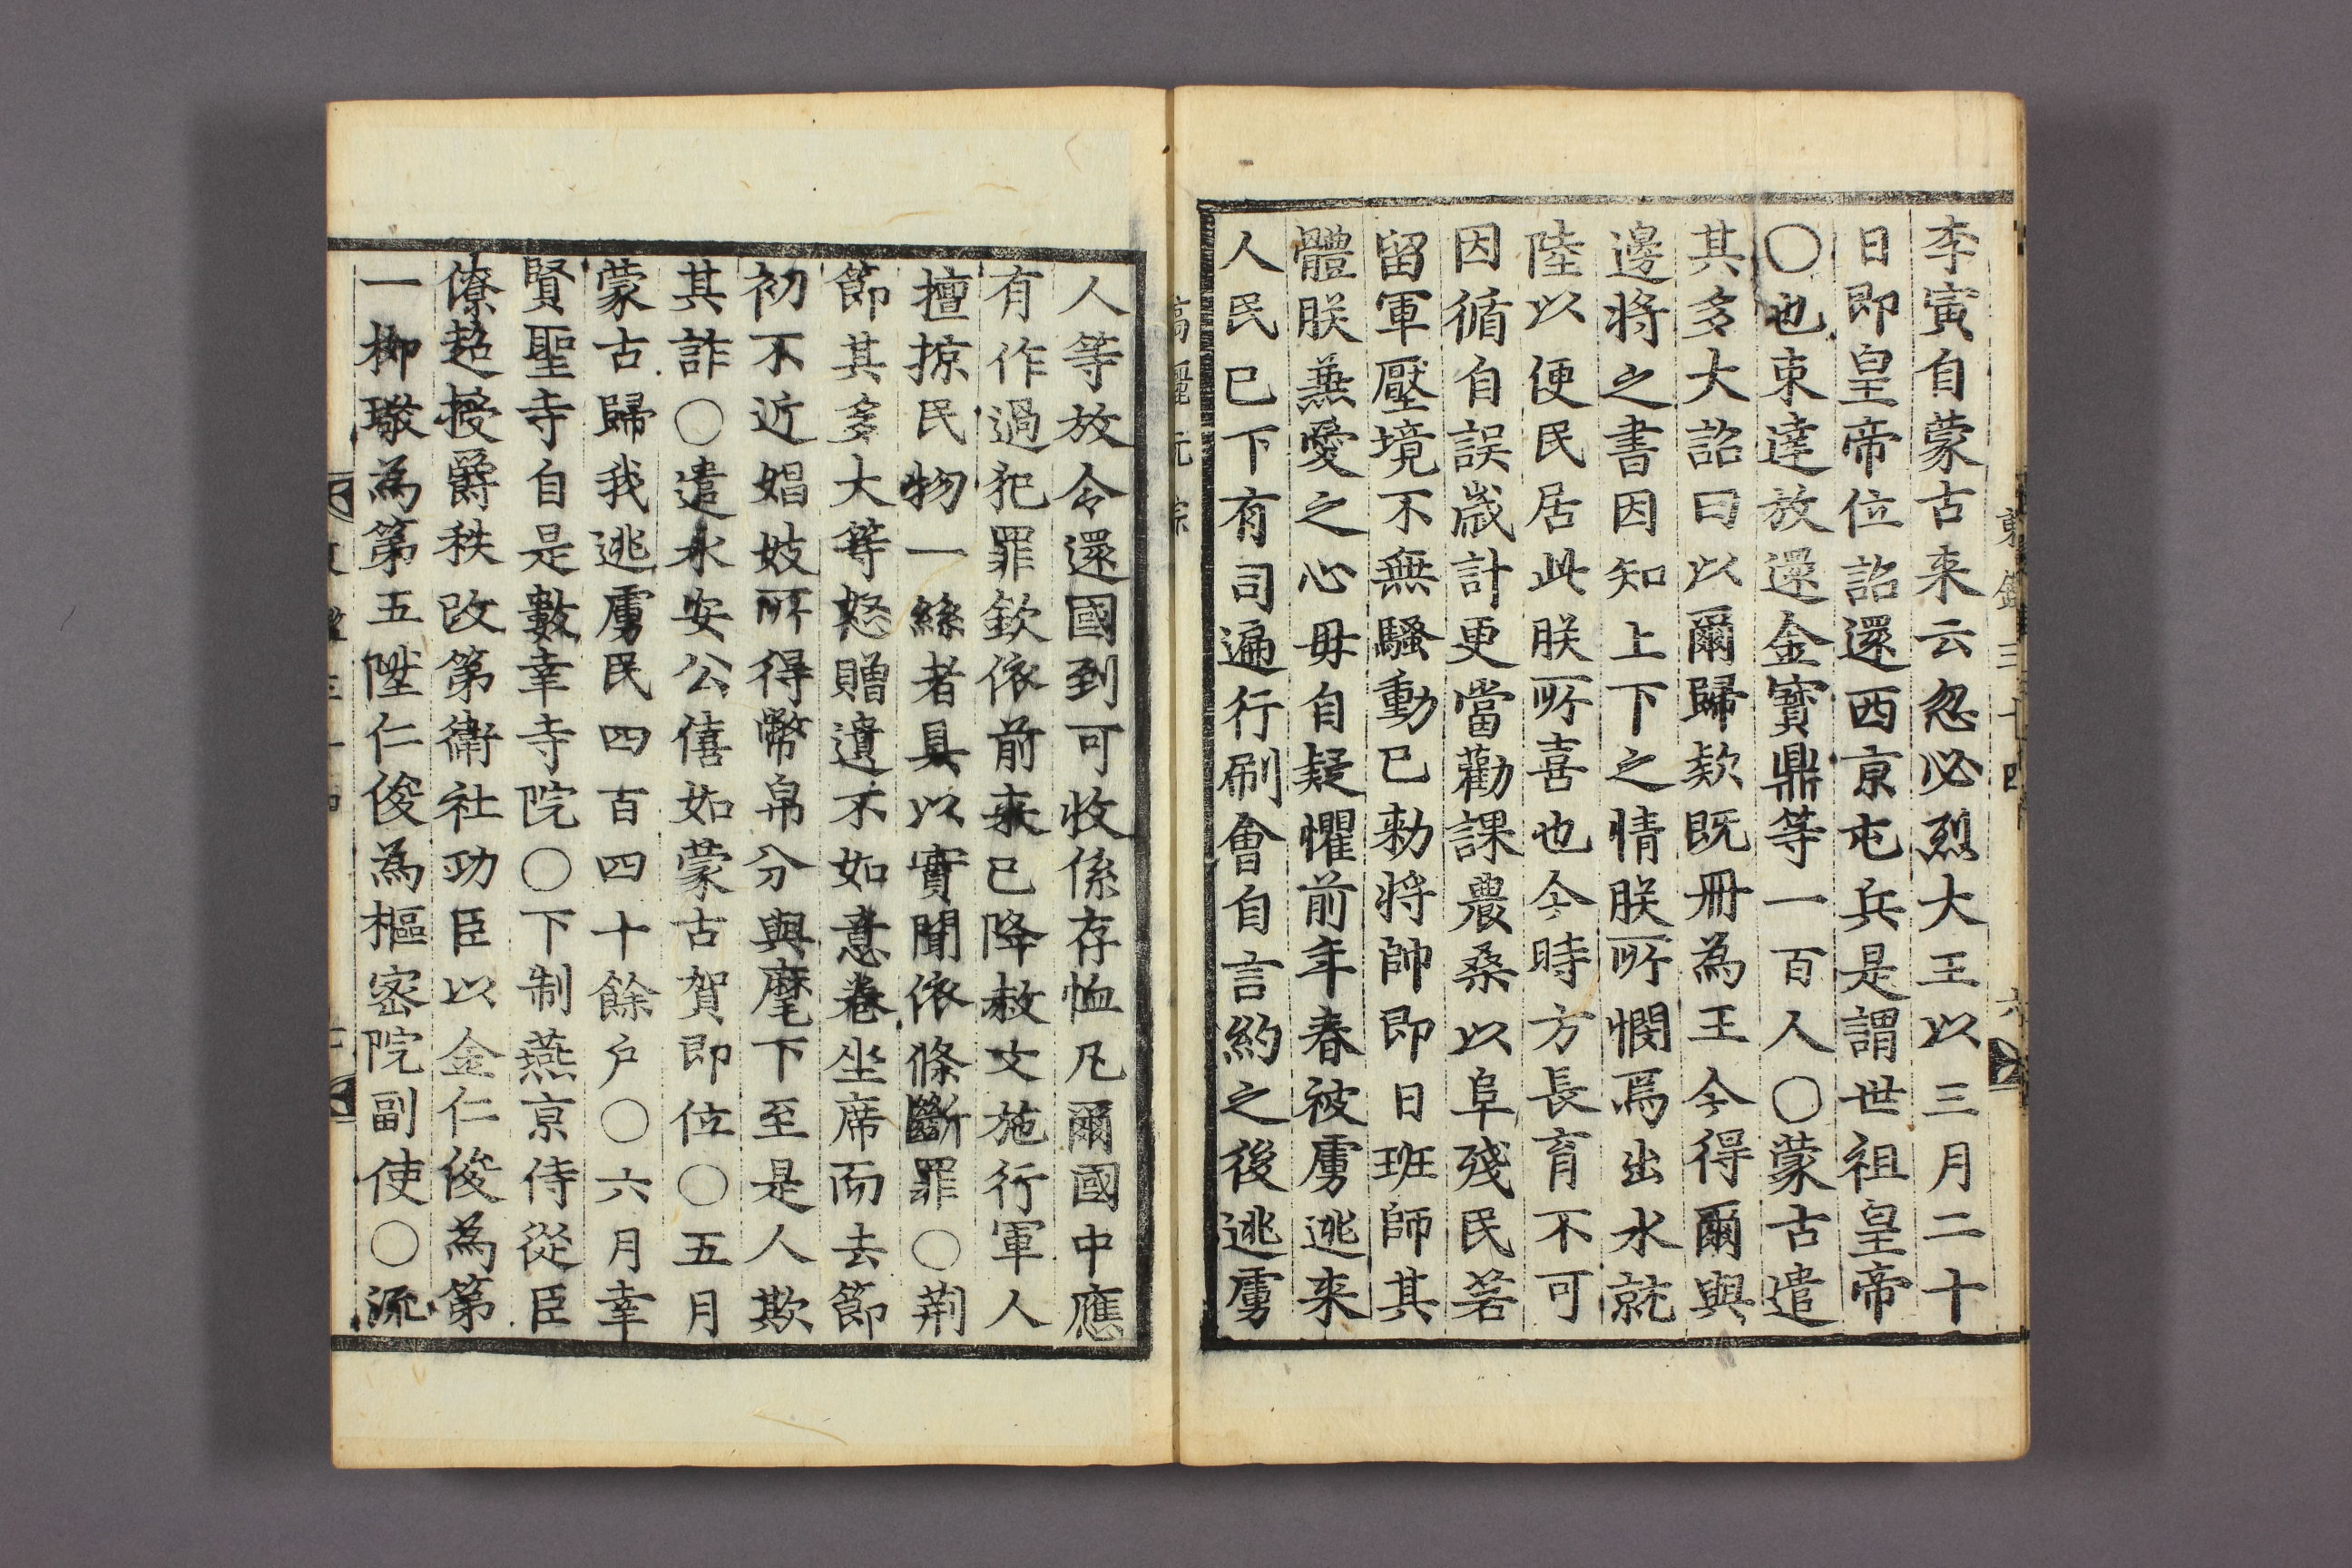 李寅自蒙古来云忽必烈大王以三月二十
日即皇帝位詔還西京屯兵是謂世祖皇帝
〇也束達放還金寶鼎等一百人〇蒙古遣
其多大詔曰以爾歸欵既冊為王今得爾與
邊將之書因知上下之情朕所憫焉出水就
陸以便民居此朕所喜也今時方長育不可
因循自誤歲計更當勸課農桑以阜殘民若
留軍壓境不無騷動已勑將帥即日班師其
體朕兼愛之心毋自疑懼前年春被虜逃来
人民已下有司遍行刷會自言約之後逃虜
高麗元宗
人等放令還國到可收係存恤凡爾國中應
有作過犯罪欽依前来已降赦文施行軍人
擅掠民物一絲者具以實聞依條斷罪〇荆
節其多大等怒贈遺不如意卷坐席而去節
初不近娼妓所得幣帛分與麾下至是人欺
其詐〇遣永安公僖如蒙古賀即位〇五月
蒙古歸我逃虜民四百四十餘户〇六月幸
賢聖寺自是數幸寺院〇下制燕京侍從臣
僚超授爵秩改第衛社功臣以金仁俊為第
一柳璥為第五陞仁俊為樞密院副使〇流